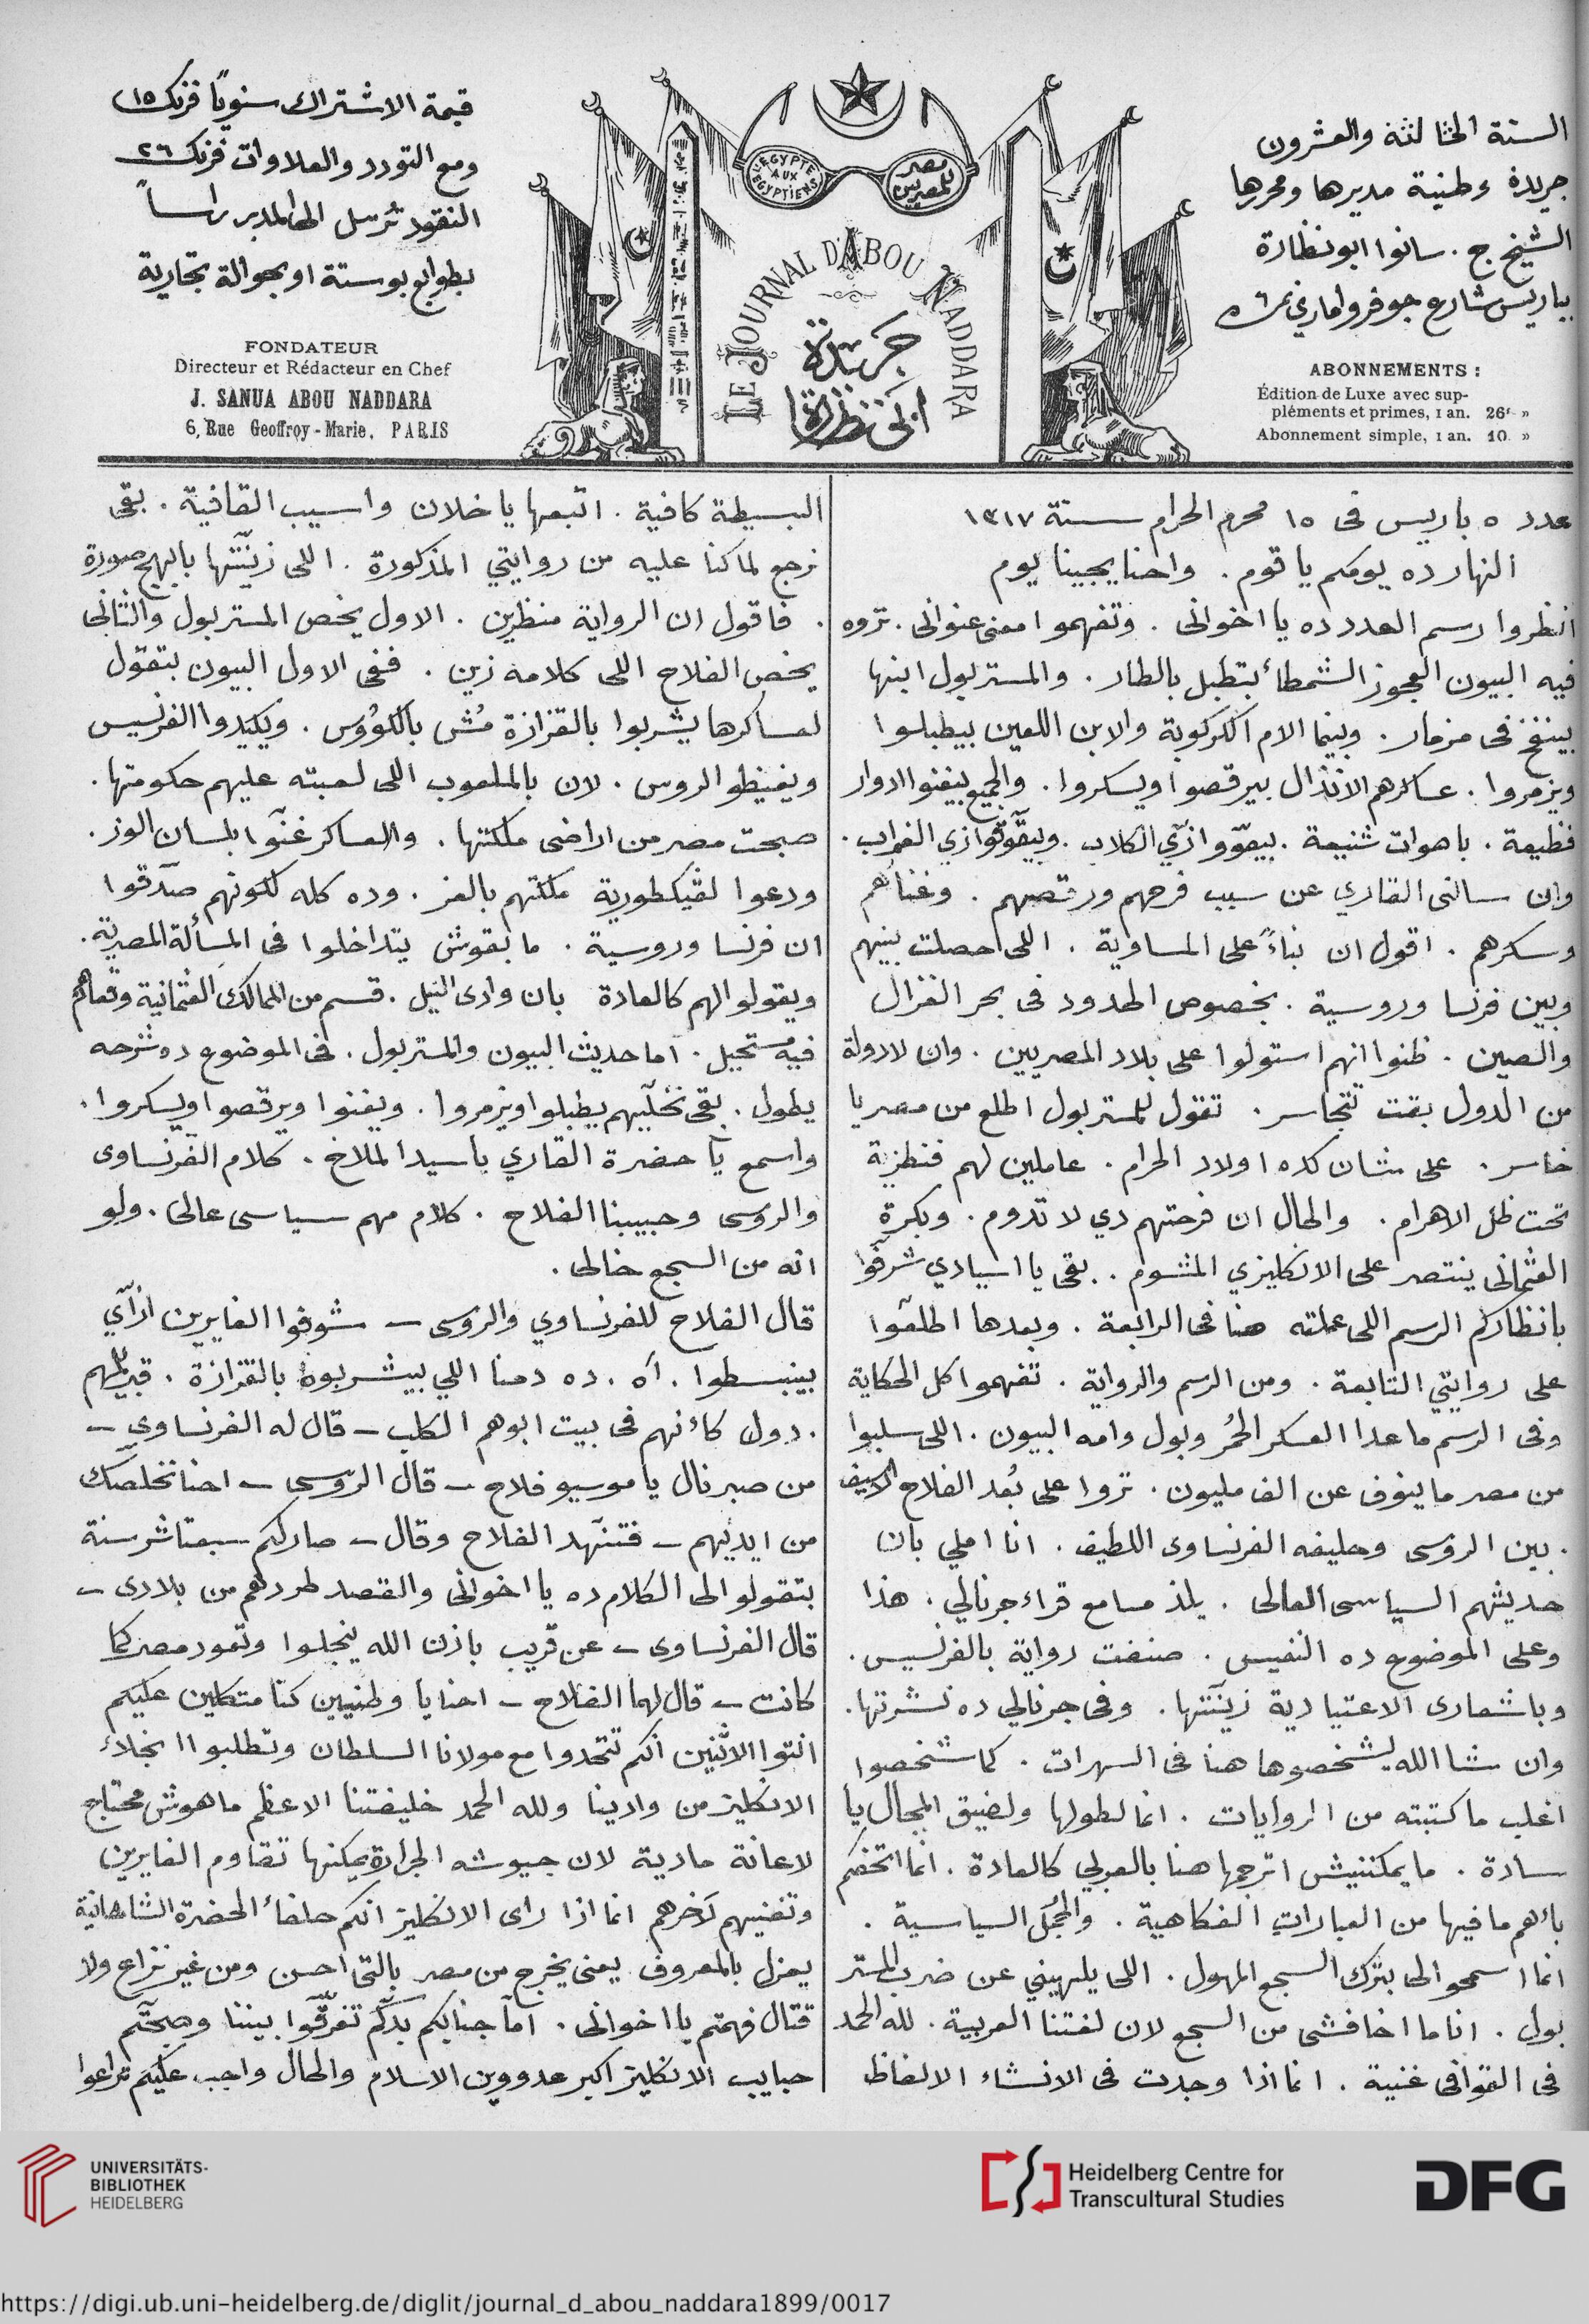 السنة الثالثة والعشرون
جريدة وطنية مديرها ومحررها
الشيخ ج. سانوا ابو نظارة
بباريس شارع جوفروا ماري نمرة ٦
ABONNEMENTS :
Édition de Luxe avec sup-
pléments et primes, 1 an. 26f »
Abonnement simple, 1 an. 10 »
L'EGYPTE
AUX
EGYPTIENS
مصر
للمصريين
LE JOURNAL D'ABOU NADDARA
جريدة
ابي نظارة
قيمة الاشتراك سنويًا فرنك ١٥
ومع التورد والعلاوات فرنك ٢٦
النقود تُرسل الى المدير راساً
بطوابع بوستة او بحوالة تجارية
FONDATEUR
Directeur et Rédacteur en Chef
J. SANUA ABOU NADDARA
6, Rue Geoffroy-Marie, PARIS
عدد ٥ باريس فى ١٥ محرم الحرام سنة ١٣١٧
النهارده يومكم يا قوم . واحنا يجيينا يوم
انظروا رسم العدد ده يا اخوانى . وتفهموا معنى عنوانى . تروه
فيه البيون العجوز الشمطاء بتطبل بالطار . والمستر بول ابنها
بينفخ فى مزمار . وبينما الام الكركوبة والابن اللعين بيطبلوا
ويزمروا . عساكرهم الانذال بيرقصوا ويسكروا . والجميع بيغنوا ادوار
فظيعة . باهوات شنيعة . بيعوّوا ازّي الكلاب . وبيقّوقوا ازي الغراب .
وان سالنى القاري عن سبب فرحهم ورقصهم . وغناهم
وسكرهم . اقول ان بناءً على المساوية . اللى احصلت بينهم
وبين فرنسا وروسية . بخصوص الحدود فى بحر الغزال
والصين . ظنوا انهم استولوا على بلاد المصريين . وان لا دولة
من الدول بقت تتجاسر . تقول للمستر بول اطلع من مصر يا
خاسر . على شان كده اولاد الحرام . عاملين لهم فنطزية
تحت ظل الاهرام . والحال ان فرحتهم دي لا تدوم . وبكرة
العثمانى ينتصر على الانكليزي المشوم . بقى يا اسيادي شرفّوا
بانظاركم الرسم اللى عملته هنا فى الرابعة . وبعدها اطلعّوا
على روايتي التابعة . ومن الرسم والرواية . تفهموا كل الحكاية
وفى الرسم ما عدا العسكر الحُمر وبول وامه البيون . اللى سلبوا
من مصر ما ينوف عن الف مليون . تروا على بُعد الفلاح الاسيف
. بين الروسى وحليفه الفرنساوى اللطيف . انا املي بان
حديثهم السياسى العالى . يلذ مسامع قراء جرنالي . هذا
وعلى الموضوع ده النفيس . صنفت رواية بالفرنسيس .
وباشعارى الاعتيادية زينّتها . وفى جرنالي ده نشرتها .
وان شا الله يشخصوها هنا فى السهرات . كما شخصوا
اغلب ما كتبته من الروايات . انما لطولها ولضيق المجال يا
سادة . ما يمكننيش اترجمها هنا بالعربي كالعادة . انما اتحفكم
باهم ما فيها من العبارات الفكاهية . والجُمل السياسية .
انما اسمحوا لى بترك السجع المهول . اللى يلهيني عن ضرب المستر
بول . انا ما اخافشى من السجع لان لغتنا العربية . لله الحمد
فى القوافى غنية . انما اذا وجدت فى الانشاء الالفاظ
البسيطة كافية . اتبعها يا خلان واسيب القافية . بقى
نرجع لما كنا عليه من روايتي المذكورة . اللى زينّتها بابهج صورة
. فاقول ان الرواية منظرين . الاول يخص المستر بول والثانى
يخص الفلاح اللى كلامه زين . ففى الاول البيون بتقول
لعساكرها يشربوا بالقزازة مُش بالكوُوس . ويكيّدوا الفرنسيس
ويغيظوا الروس . لان بالملعوب اللى لعبته عليهم حكومتها .
صبحت مصر من اراضى ملكتها . والعساكر غنّوا بلسان الوز .
ودعوا لفيكطورية ملكتهم بالعز . وده كله لكونهم صدّقوا
ان فرنسا وروسية . ما بقوش يتداخلوا فى المسألة المصرية .
ويقولوا لهم كالعادة بان وادى النيل . قسم من الممالك العثمانية وقعادهم
فيه مستحيل . اما حديث البيون والمستر بول . فى الموضوع ده شرحه
يطول . بقى نخليّهم يطبلوا ويزمروا . ويغنوا ويرقصوا ويسكروا .
واسمع يا حضرة القاري يا سيد الملاح . كلام الفرنساوى
والروسى وحبيبنا الفلاح . كلام مهم سياسى عالى . ولو
انه من السجع خالى .
قال الفلاح للفرنساوي والروسى – شوفوا الغايرين ازّاي
بينبسطوا . آه . ده دمنا اللي بيشربوه بالقزازة .
. دول كأنهم فى بيت ابوهم الكلب – قال له الفرنساوي –
من صبر نال يا موسيو فلاح – قال الروسى – احنا نخلصّك
من ايديهم – فتنهّد الفلاح وقال – صار لكم سبعتاشر سنة
بتقولوا لى الكلام ده يا اخوانى والقصد طردهم من بلادى –
قال الفرنساوى – عن قريب باذن الله ينجلوا وتعود مصر كما
كانت – قال لهما الفلاح – احنا يا وطنيين كنا متكلين عليكم
انتوا الاثنين انكم تتحدوا مع مولانا السلطان وتطلبوا انجلاء
الانكليز من وادينا ولله الحمد خليفتنا الاعظم ما هوش محتاج
لاعانة مادية لان جيوشه الجرارة يمكنها تقاوم الغايرين
وتفنيهم لآخرهم انما اذا راى الانكليز انكم حلفاء الحضرة الشاهانية
يعزل بالمعروف يعنى يخرج من مصر بالتى احسن ومن غير نزاع ولا
قتال فهمتم يا اخوانى . اما جنابكم بدكّم تفرقّوا بيننا وصبحتم
حبايب الانكليز اكبر عدووين الاسلام والحال واجب عليكم تراعوا
UNIVERSITÄTS-
BIBLIOTHEK
HEIDELBERG
Heidelberg Centre for
Transcultural Studies
DFG
https://digi.ub.uni-heidelberg.de/diglit/journal_d_abou_naddara1899/0017